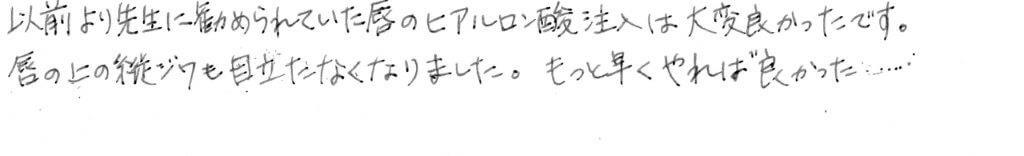 以前より先生に勧められていた唇のヒアルロン酸注入は大変良かったです。
唇の上の縦ジワも目立たなくなりました。もっと早くやれば良かった……